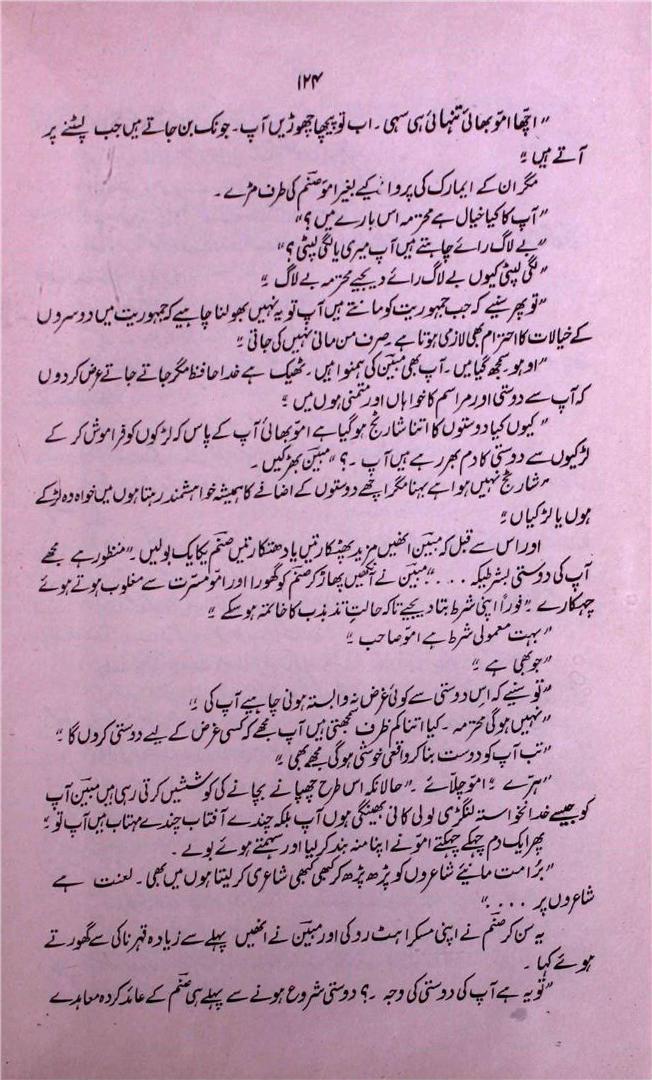 ۱۲۴
"اچھا امّو بھائی تنہائی ہی سہی۔ اب تو پیچھا چھوڑیں آپ۔ جونک بن جاتے ہیں جب لپٹنے پر
آتے ہیں"
مگر ان کے ایمارک کی پروا کیے بغیر امّو صنّم کی طرف مڑے۔
"آپ کا کیا خیال ہے محترمہ اس بارے میں؟"
"بے لاگ رائے چاہتے ہیں آپ میری یا لگی لپٹی؟"
"لگی لپٹی کیوں بے لاگ رائے دیجیے محترمہ بے لاگ"
"تو پھر سنیے کہ جب جمہوریت کو مانتے ہیں آپ تو یہ نہیں بھولنا چاہیے کہ جمہوریت میں دوسروں
کے خیالات کا احترام بھی لازمی ہوتا ہے۔ صرف من مانی نہیں کی جاتی"
"اوہو۔ سمجھ گیا میں۔ آپ بھی مبیّن کی ہمنوا ہیں۔ ٹھیک ہے خدا حافظ مگر جاتے جاتے عرض کردوں
کہ آپ سے دوستی اور مراسم کا خواہاں اور متمنی ہوں میں"
"کیوں کیا دوستوں کا اتنا شارٹج ہوگیا ہے امّو بھائی آپ کے پاس کہ لڑکوں کو فراموش کر کے
لڑکیوں سے دوستی کا دم بھر رہے ہیں آپ۔؟" مبیّن بھڑکیں۔
"شارٹج نہیں ہوا ہے بہنا مگر اچھے دوستوں کے اضافے کا ہمیشہ خواہشمند رہتا ہوں میں خواہ وہ لڑکے
ہوں یا لڑکیاں"
اور اس سے قبل کہ مبیّن انھیں مزید پھٹکارتیں یا دھتکارتیں صنّم یکایک بولیں۔ "منظور ہے مجھے
آپ کی دوستی بشرطیکہ ۔۔۔" مبیّن نے آنکھیں پھاڑ کر صنّم کو گھورا اور امّو مسرّت سے مغلوب ہوتے ہوئے
چہکارے "فوراً اپنی شرط بتا دیجیے تاکہ حالتِ تذبذب کا خاتمہ ہو سکے"
"بہت معمولی شرط ہے امّو صاحب"
"جو بھی ہے"
"تو سنیے کہ اِس دوستی سے کوئی غرض نہ وابستہ ہونی چاہیے آپ کی"
"نہیں ہوگی محترمہ۔ کیا اتنا کم ظرف سمجھتی ہیں آپ مجھے کہ کسی غرض کے لیے دوستی کروں گا"
"تب آپ کو دوست بنا کر واقعی خوشی ہوگی مجھے بھی"
"ہرّے" امّو چلّائے۔ "حالانکہ اس طرح چھپانے بچانے کی کوششیں کرتی رہی ہیں مبیّن آپ
کو جیسے خدانخواستہ لنگڑی لولی کانی بھینگی ہوں آپ بلکہ چندے آفتاب چندے مہتاب ہیں آپ تو"
پھر ایک دم چہکتے چہکتے امّو نے اپنا منہ بند کر لیا اور سہمتے ہوئے بولے۔
"برُا مت مانیئے شاعروں کو پڑھ پڑھ کر کبھی کبھی شاعری کر لیتا ہوں میں بھی۔ لعنت ہے
شاعروں پر ۔۔۔۔"
یہ سن کر صنّم نے اپنی مسکراہٹ روکی اور مبیّن نے انھیں پہلے سے زیادہ قہرناکی سے گھورتے
ہوئے کہا۔
"تو یہ ہے آپ کی دوستی کی وجہ۔؟ دوستی شروع ہونے سے پہلے ہی صنّم کے عائد کردہ معاہدے